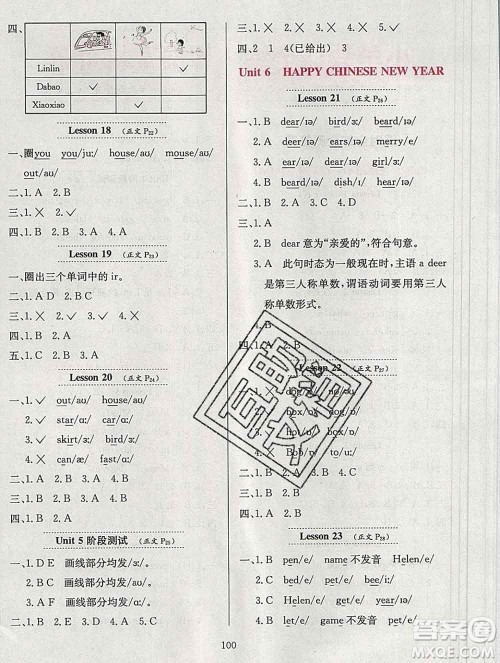 四、
Linlin ✓
Dabao ✓
Xiaoxiao ✓
Lesson 18 (正文 P22)
一、圈you you/juː/ house/aʊ/ mouse/aʊ/
out/aʊ/
二、1. A 2. B
三、1. × 2. ✓
四、1. B 2. B 3. A 4. A
Lesson 19 (正文 P23)
一、圈出三个单词中的 ir。
二、1. A 2. A 3. B
三、1. × 2. ✓ 3. ✓ 4. ×
四、1. B 2. A 3. B 4. A
五、1. C 2. A 3. B
Lesson 20 (正文 P24)
一、1. ✓ out/aʊ/ house/aʊ/
2. ✓ star/ɑː/ car/ɑː/
3. ✓ skirt/ɜː/ bird/ɜː/
4. × can/æ/ fast/ɑː/
二、1. C 2. A 3. B 4. D
三、1. × 2. × 3. ✓ 4. ✓
四、1. A 2. B
Unit 5 阶段测试 (正文 P25)
一、1. D E 画线部分均发/ɜː/。
2. B C 画线部分均发/aʊ/。
3. A F 画线部分均发/ɑː/。
二、1. A 2. B 3. A 4. A
三、1. × 2. ✓ 3. ✓ 4. ×
四、2 1 4(已给出) 3
Unit 6 HAPPY CHINESE NEW YEAR
Lesson 21 (正文 P26)
一、1. B dear/ɪə/ bird/ɜː/ beard/ɪə/
2. A ear/ɪə/ merry/e/ dear/ɪə/
3. A ear/ɪə/ dear/ɪə/ girl/ɜː/
4. B beard/ɪə/ dish/ɪ/ hear/ɪə/
二、1. B 2. A
三、1. A
2. B dear 意为“亲爱的”,符合句意。
3. A 此句时态为一般现在时,主语 a deer
是第三人称单数,谓语动词要用第三人
称单数形式。
1. B
四、1. A 2. B
Lesson 22 (正文 P27)
3. ✓
4. × Bob/ɒ/
二、1. A 2. B 3. D 4. C
三、1. ✓ 2. × 3. × 4. ✓
四、1. B 2. B
Lesson 23 (正文 P28)
一、1. B pen/e/ name 不发音 Helen/e/
2. A pen/e/ Helen/e/ name 不发音
二、1. B 2. A 3. A
100
答案圈
MXQE.COM